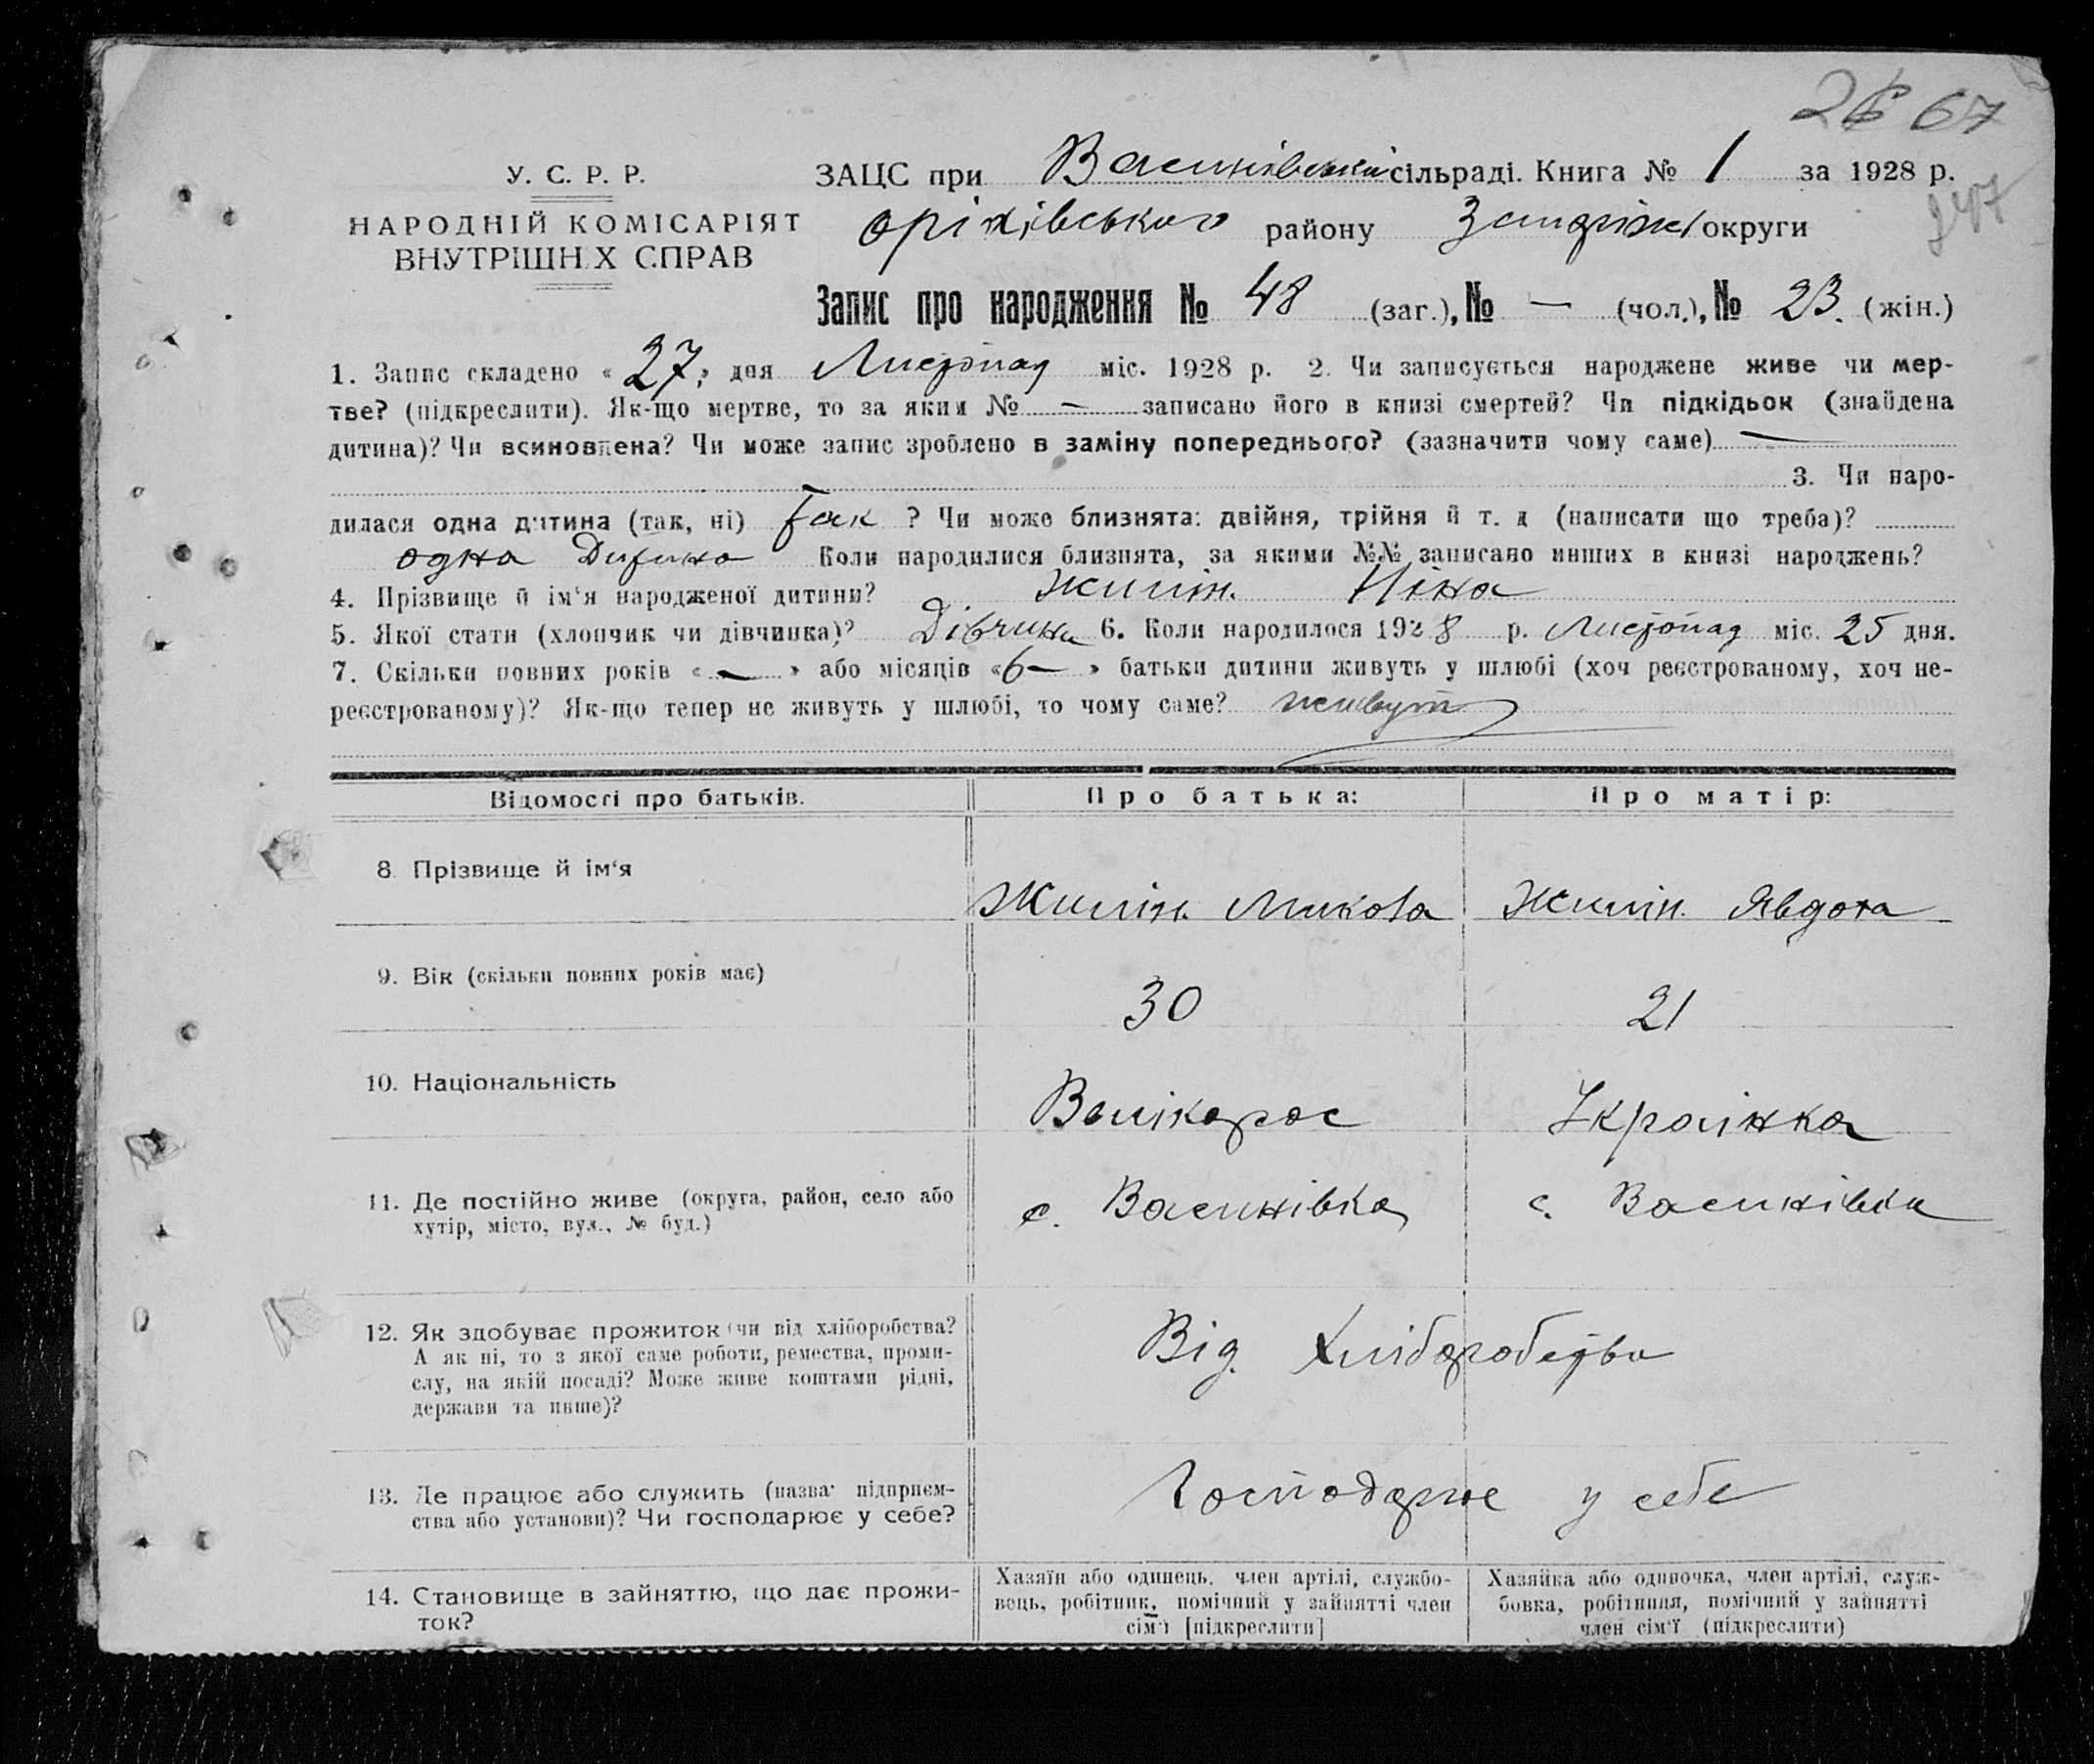 26 67
У. С. Р. Р.
НАРОДНІЙ КОМІСАРІЯТ
ВНУТРІШНІХ СПРАВ
ЗАЦС при Васинівській сільраді. Книга № 1 за 1928 р.
247
Оріхівського району Запоріжс округи
Запис про народження № 48 (заг.), № — (чол.), № 23. (жін.)
1. Запис складено « 27 » дня Листопад міс. 1928 р. 2. Чи записується народжене живе чи мер-
тве? (підкреслити). Як-що мертве, то за яким № — записано його в книзі смертей? Чи підкідьок (знайдена
дитина)? Чи всиновлена? Чи може запис зроблено в заміну попереднього? (зазначити чому саме) —
3. Чи наро-
дилася одна дитина (так, ні) Так ? Чи може близнята: двійня, трійня й т. д (написати що треба)?
одна Дитина Коли народилися близнята, за якими №№ записано инших в книзі народжень?
4. Прізвище й ім‘я народженої дитини? Жилін. Ніна
5. Якої стати (хлопчик чи дівчинка)? Дівчина 6. Коли народилося 1928 р. Листопад міс. 25 дня.
7. Скільки повних років « — » або місяців « 6 — » батьки дитини живуть у шлюбі (хоч реєстрованому, хоч не-
реєстрованому)? Як-що тепер не живуть у шлюбі, то чому саме? живут
Відомості про батьків. Про батька: Про матір:
8. Прізвище й ім‘я Жилін. Микола Жилін. Явдота
9. Вік (скільки повних років має) 30 21
10. Національність Велікорос Українка
11. Де постійно живе (округа, район, село або
хутір, місто, вул., № буд.) с. Васинівка с. Васинівка
12. Як здобуває прожиток (чи від хліборобства?
А як ні, то з якої саме роботи, ремества, проми-
слу, на якій посаді? Може живе коштами рідні,
держави та инше)? Від. Хліборобства
13. Де працює або служить (назва підприєм-
ства або установи)? Чи господарює у себе? Господарює у себе
14. Становище в зайняттю, що дає прожи-
ток?
Хазяїн або одинець, член артілі, службо-
вець, робітник, помічний у зайнятті член
сім‘ї [підкреслити]
Хазяйка або одиночка, член артілі, служ-
бовка, робітниця, помічний у зайнятті
член сім‘ї (підкреслити)